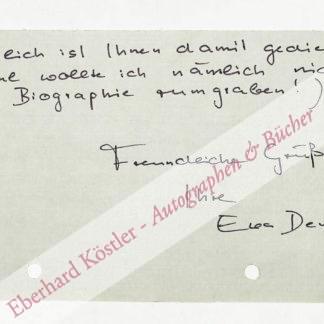 leich ist Ihnen damit gedie
wollte ich nämlich nic
Biographie rumgraben!)
Freundliche Grüß
Ihre
Eva Dem
Eberhard Köstler - Autographen & Bücher